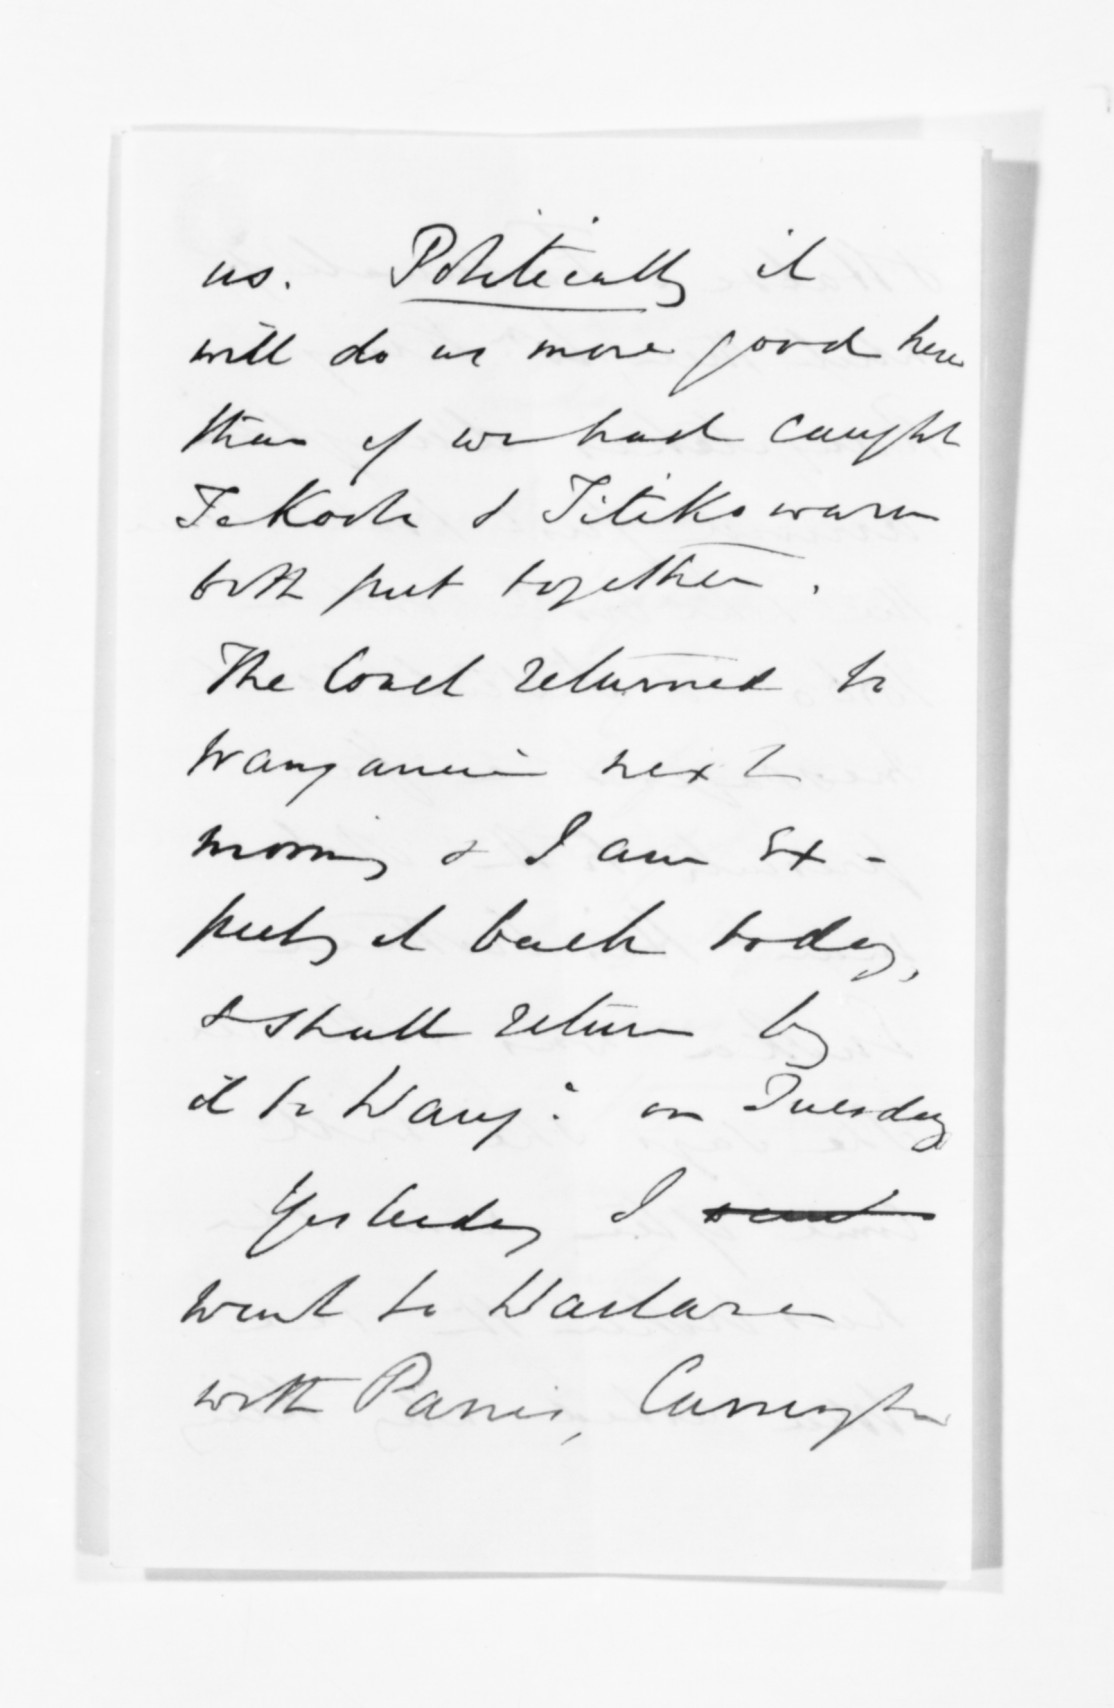 us. Politically it
will do us more good here
than if we had caught
Te Kooti & Titiko waru
both put together.
The Coach returned to
Wanganui next
morning & I am ex-
pectg it back today,
& shall return by
it to Wang: on Tuesday
Yesterday I sent
went to Waitara
with Parris, Carrington